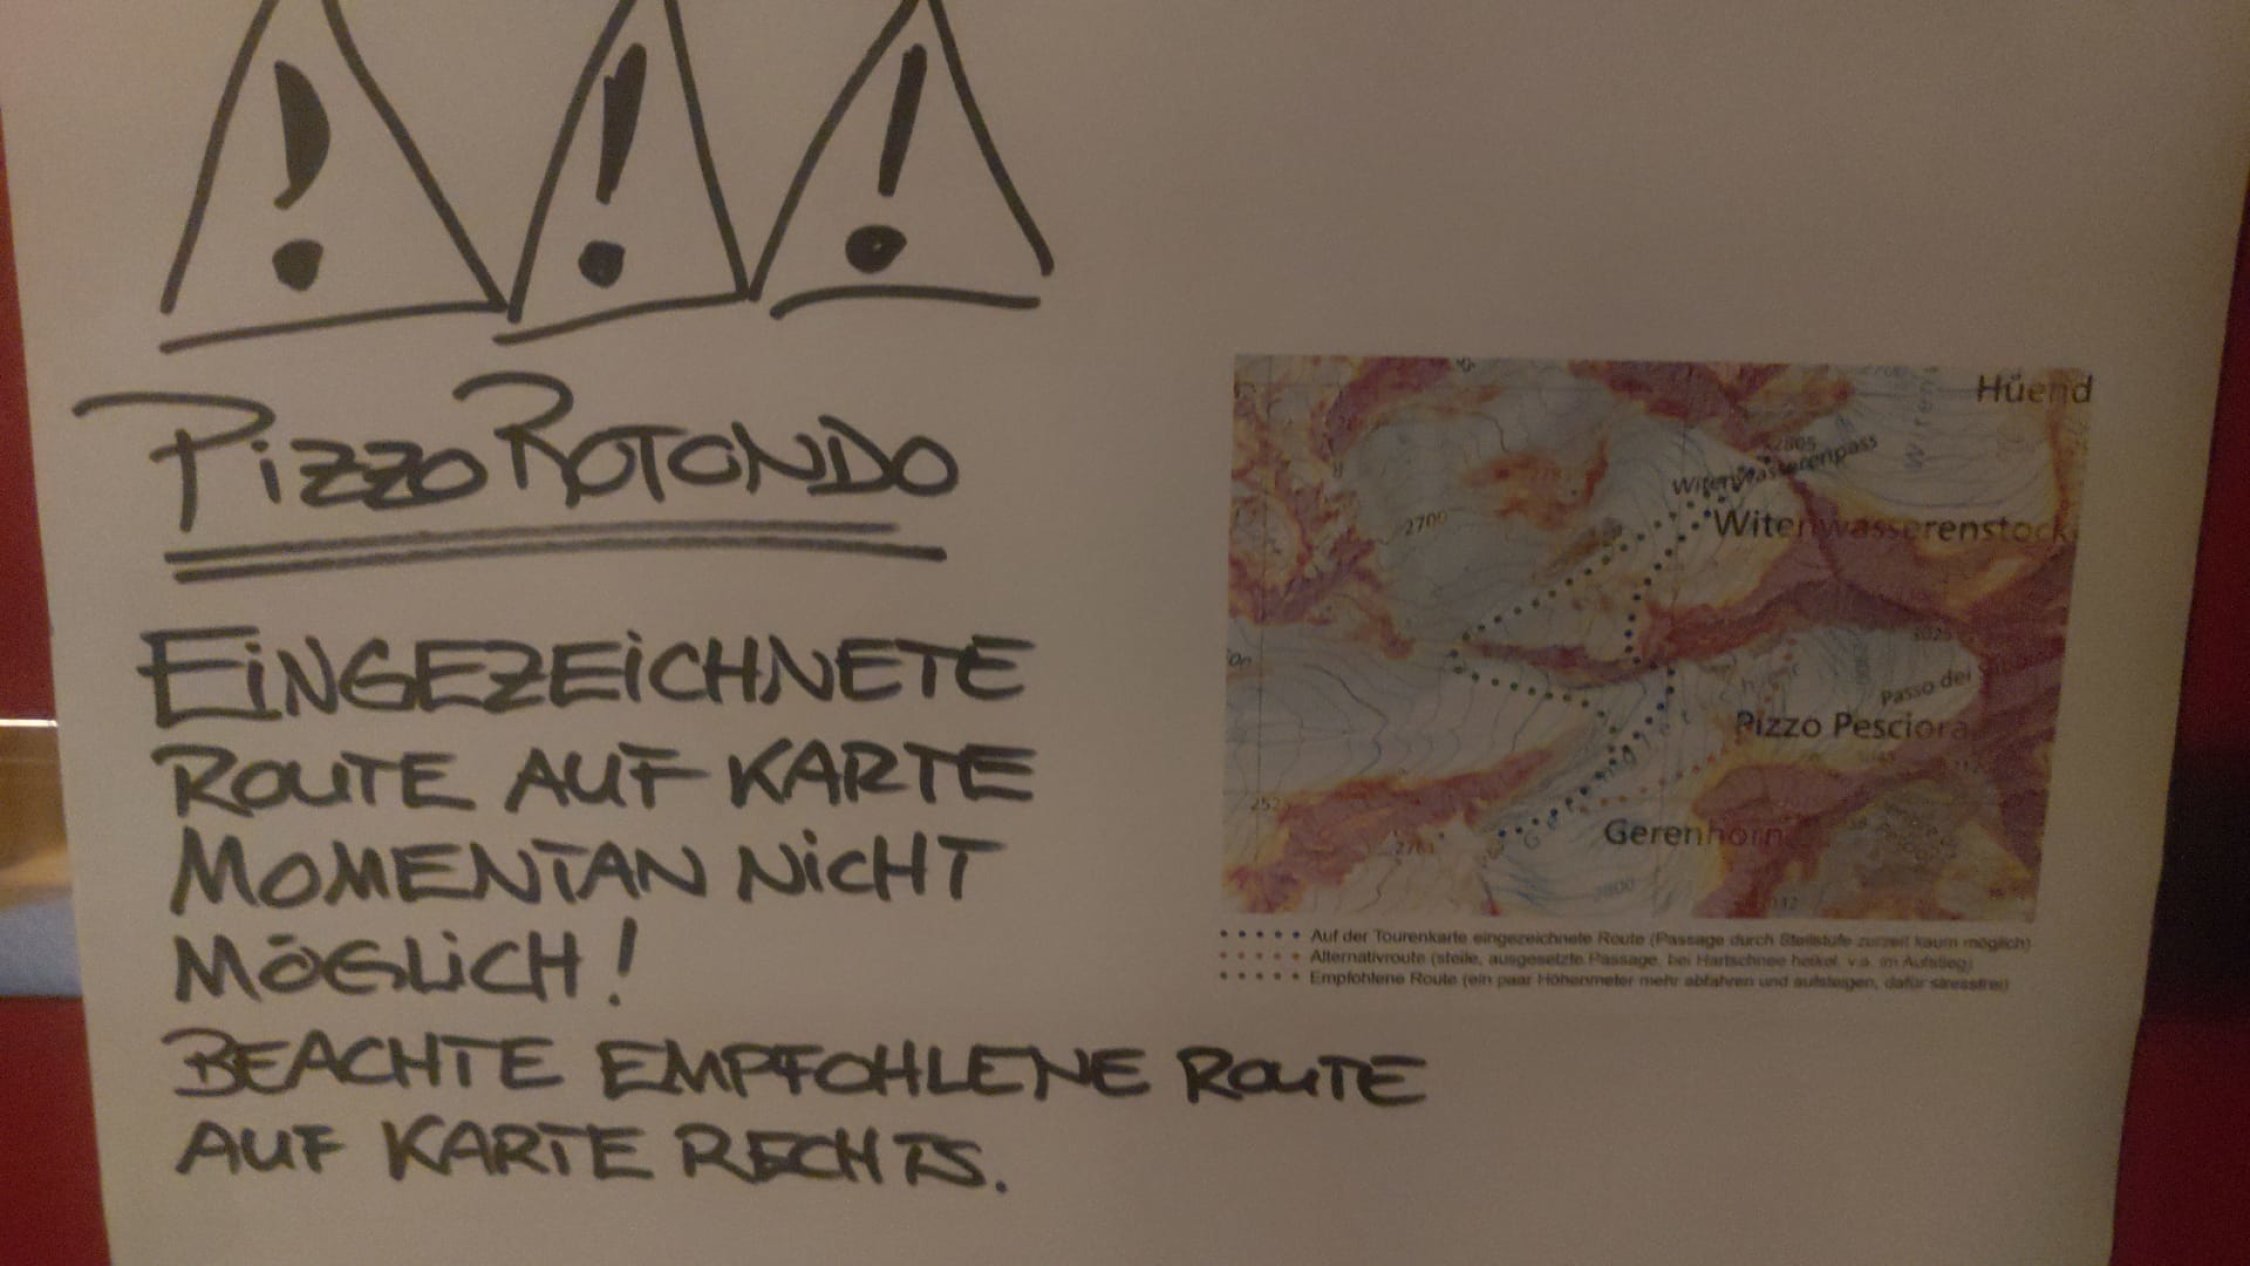 ! ! !
Pizzo Rotondo
EINGEZEICHNETE
ROUTE AUF KARTE
MOMENTAN NICHT
MÖGLICH!
BEACHTE EMPFOHLENE ROUTE
AUF KARTE RECHTS.
Hüend
2805
Witenwasserenpass
2700
Witenwasserenstock
3025
Passo dei
Pizzo Pesciora
Gerenhorn
Auf der Tourenkarte eingezeichnete Route (Passage durch Steilstufe zurzeit kaum möglich)
Alternativroute (steile, ausgesetzte Passage, bei Hartschnee heikel, v.a. im Aufstieg)
Empfohlene Route (ein paar Höhenmeter mehr abfahren und aufsteigen, dafür stressfrei)